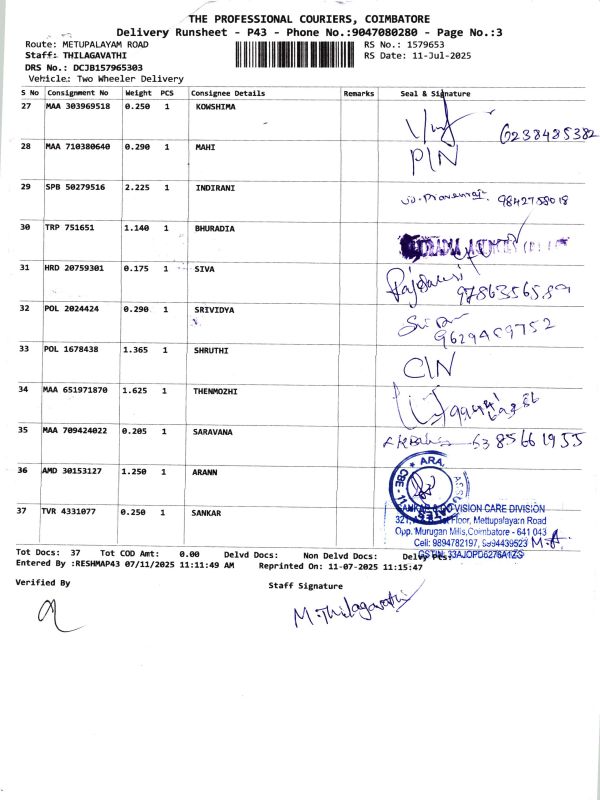 THE PROFESSIONAL COURIERS, COIMBATORE
Delivery Runsheet - P43 - Phone No.:9047080280 - Page No.:3
Route: METUPALAYAM ROAD RS No.: 1579653
Staff: THILAGAVATHI RS Date: 11-Jul-2025
DRS No.: DCJB157965303
Vehicle: Two Wheeler Delivery
S No Consignment No Weight PCS Consignee Details Remarks Seal & Signature
27 MAA 303969518 0.250 1 KOWSHIMA 6238485382
28 MAA 710380640 0.290 1 MAHI PIN
29 SPB 50279516 2.225 1 INDIRANI 9842758018
30 TRP 751651 1.140 1 BHURADIA
31 HRD 20759301 0.175 1 SIVA
32 POL 2024424 0.290 1 SRIVIDYA
33 POL 1678438 1.365 1 SHRUTHI CIN
34 MAA 651971870 1.625 1 THENMOZHI
35 MAA 709424022 0.205 1 SARAVANA 6385661955
36 AMD 30153127 1.250 1 ARANN
37 TVR 4331077 0.250 1 SANKAR
VISION CARE DIVISION
Floor, Mettupalayam Road
Opp. Murugan Mills, Coimbatore - 641 043
Cell: 9894782197, 9994439523
GSTIN: 33AJOPD6276A1ZS
Tot Docs: 37 Tot COD Amt: 0.00 Delvd Docs: Non Delvd Docs:
Entered By :RESHMAP43 07/11/2025 11:11:49 AM Reprinted On: 11-07-2025 11:15:47
Verified By Staff Signature
M. Thilagavathi